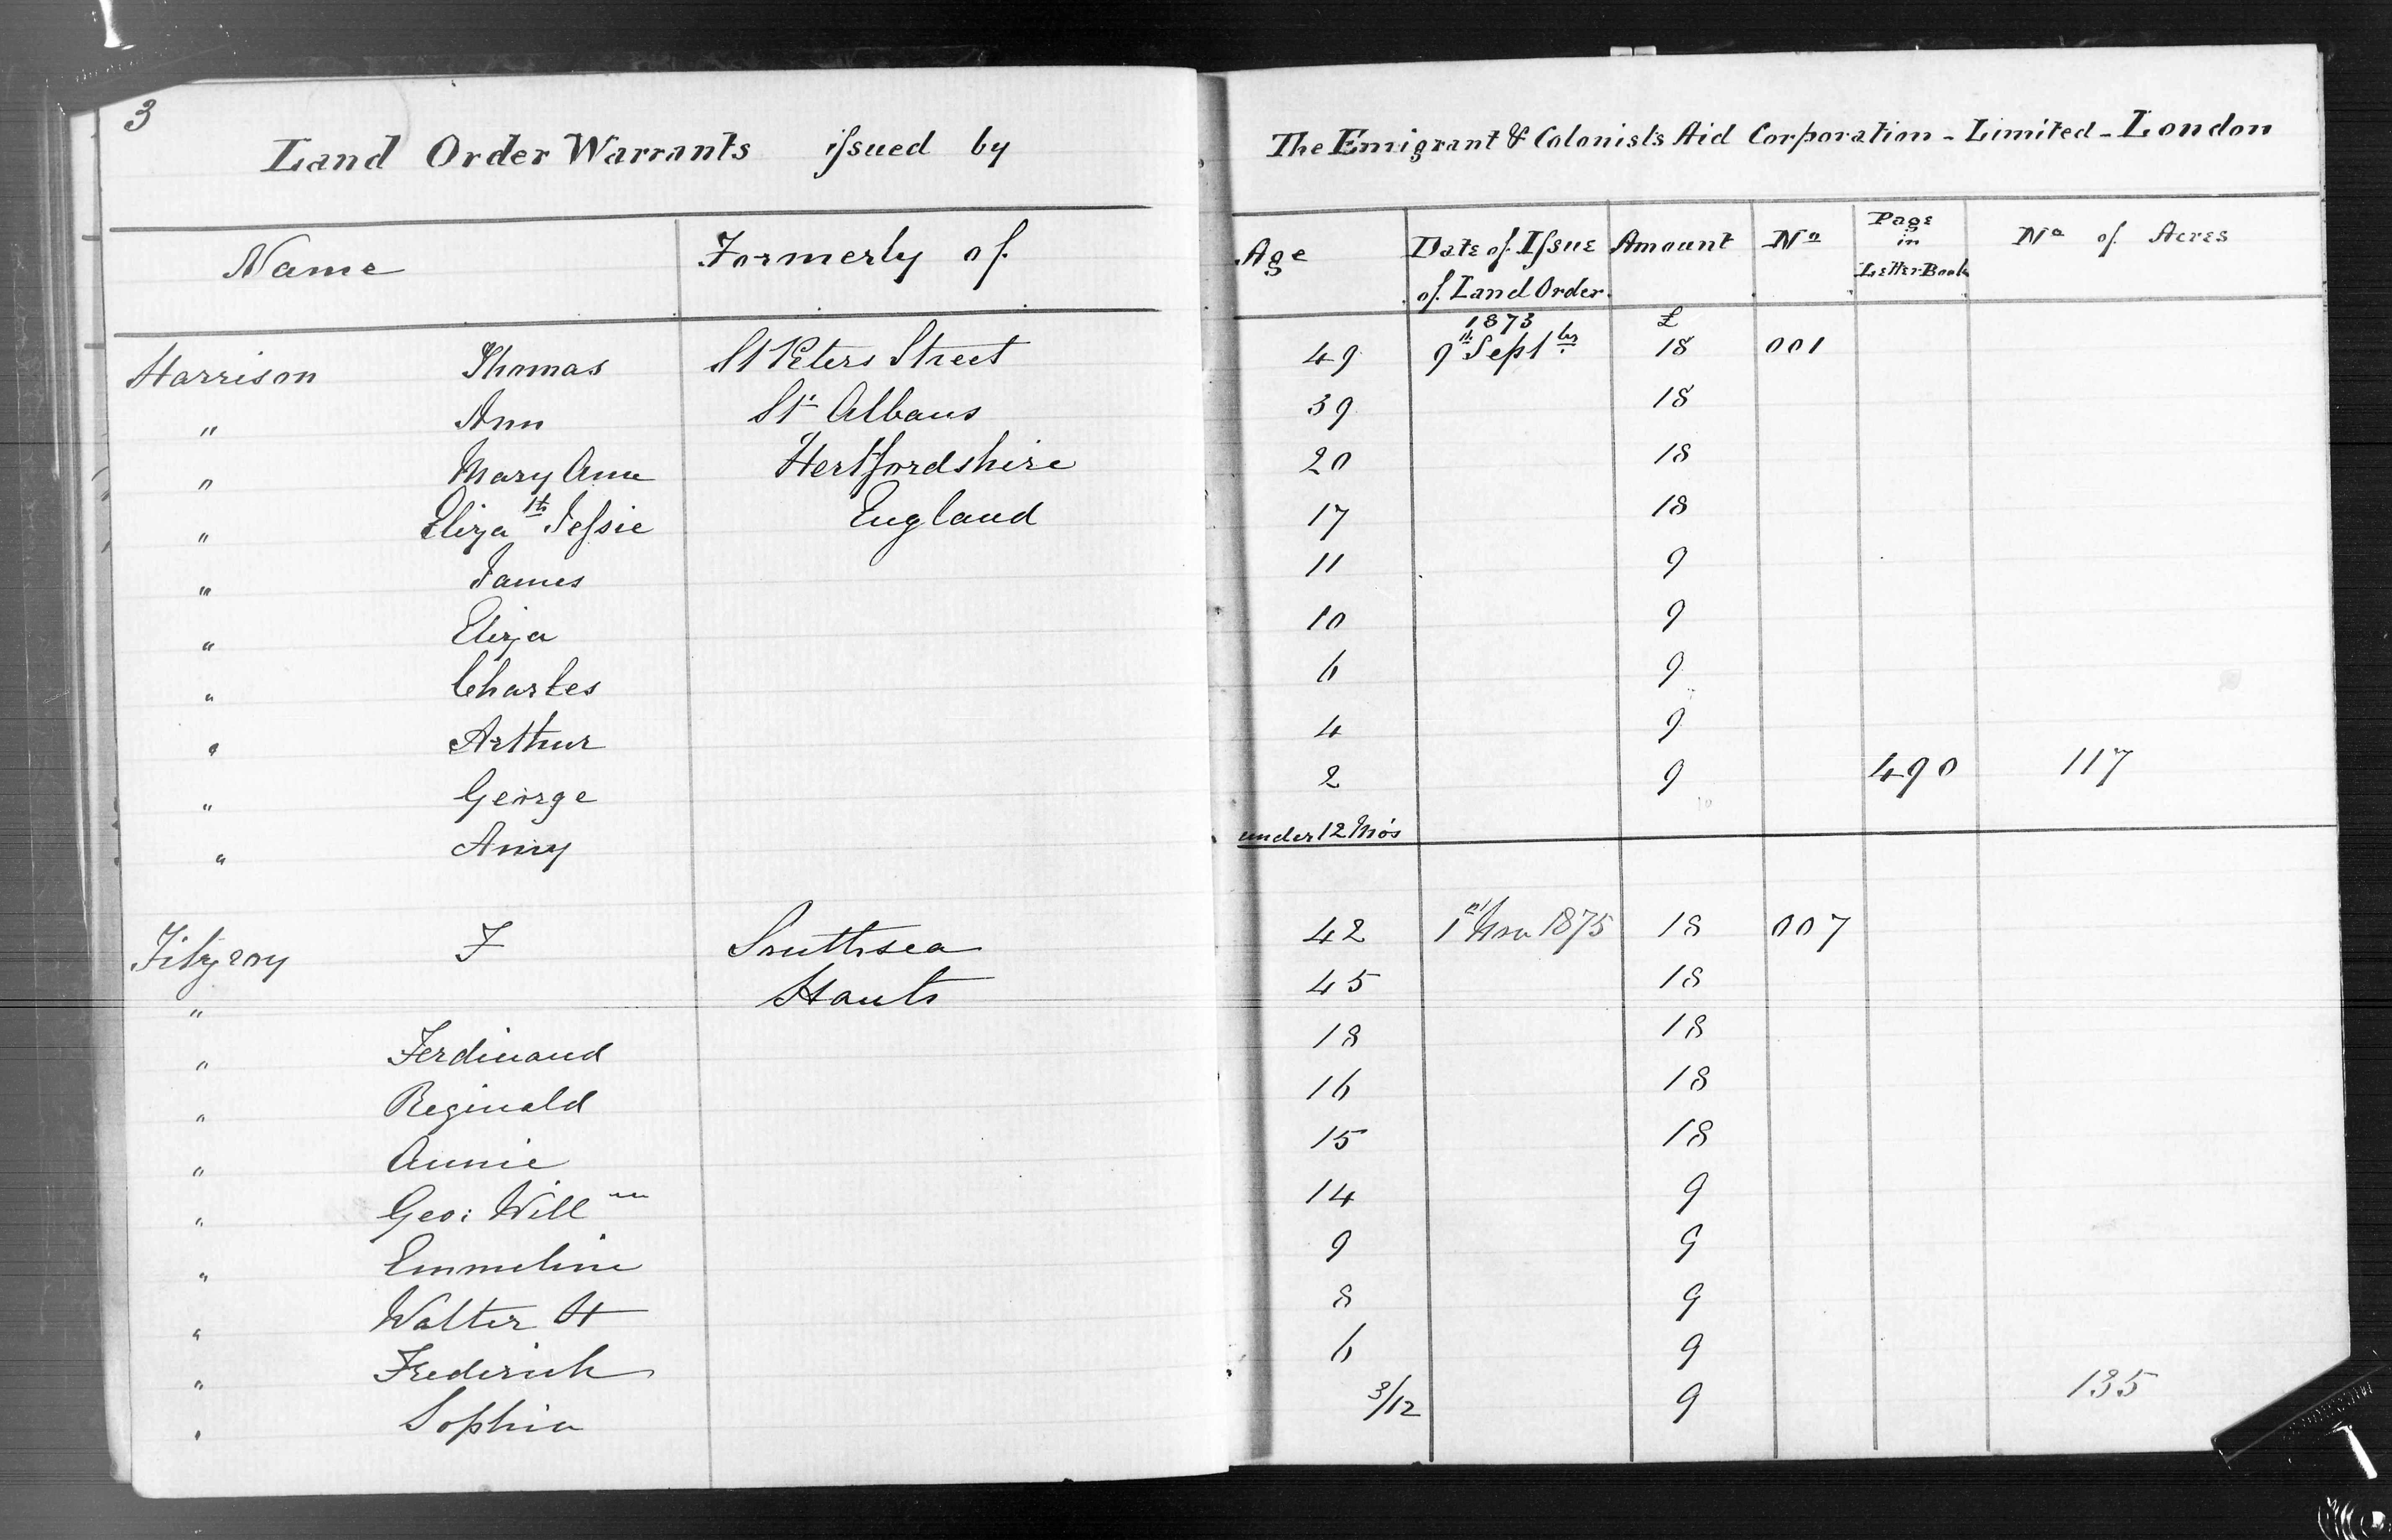 3
Land Order Warrants issued by The Emigrant & Colonists Aid Corporation - Limited - London
Name Formerly of Age Date of Issue of Land Order Amount No Page in Letter Book No of Acres
1873 £
Harrison Thomas St Peters Street 49 9th Septber 18 001
" Ann St Albans 39 18
" Mary Ann Hertfordshire 20 18
" Elizath Jessie England 17 18
" James 11 9
" Eliza 10 9
" Charles 6 9
" Arthur 4 9
" George 2 9 490 117
" Amy under 12 Mos
Fitzroy F Southsea 42 1st Nov 1875 18 007
" Hants 45 18
" Ferdinand 18 18
" Reginald 16 18
" Annie 15 18
" Geo: Willm 14 9
" Emmeline 9 9
" Walter H 8 9
" Frederick 6 9
" Sophia 3/12 9 135